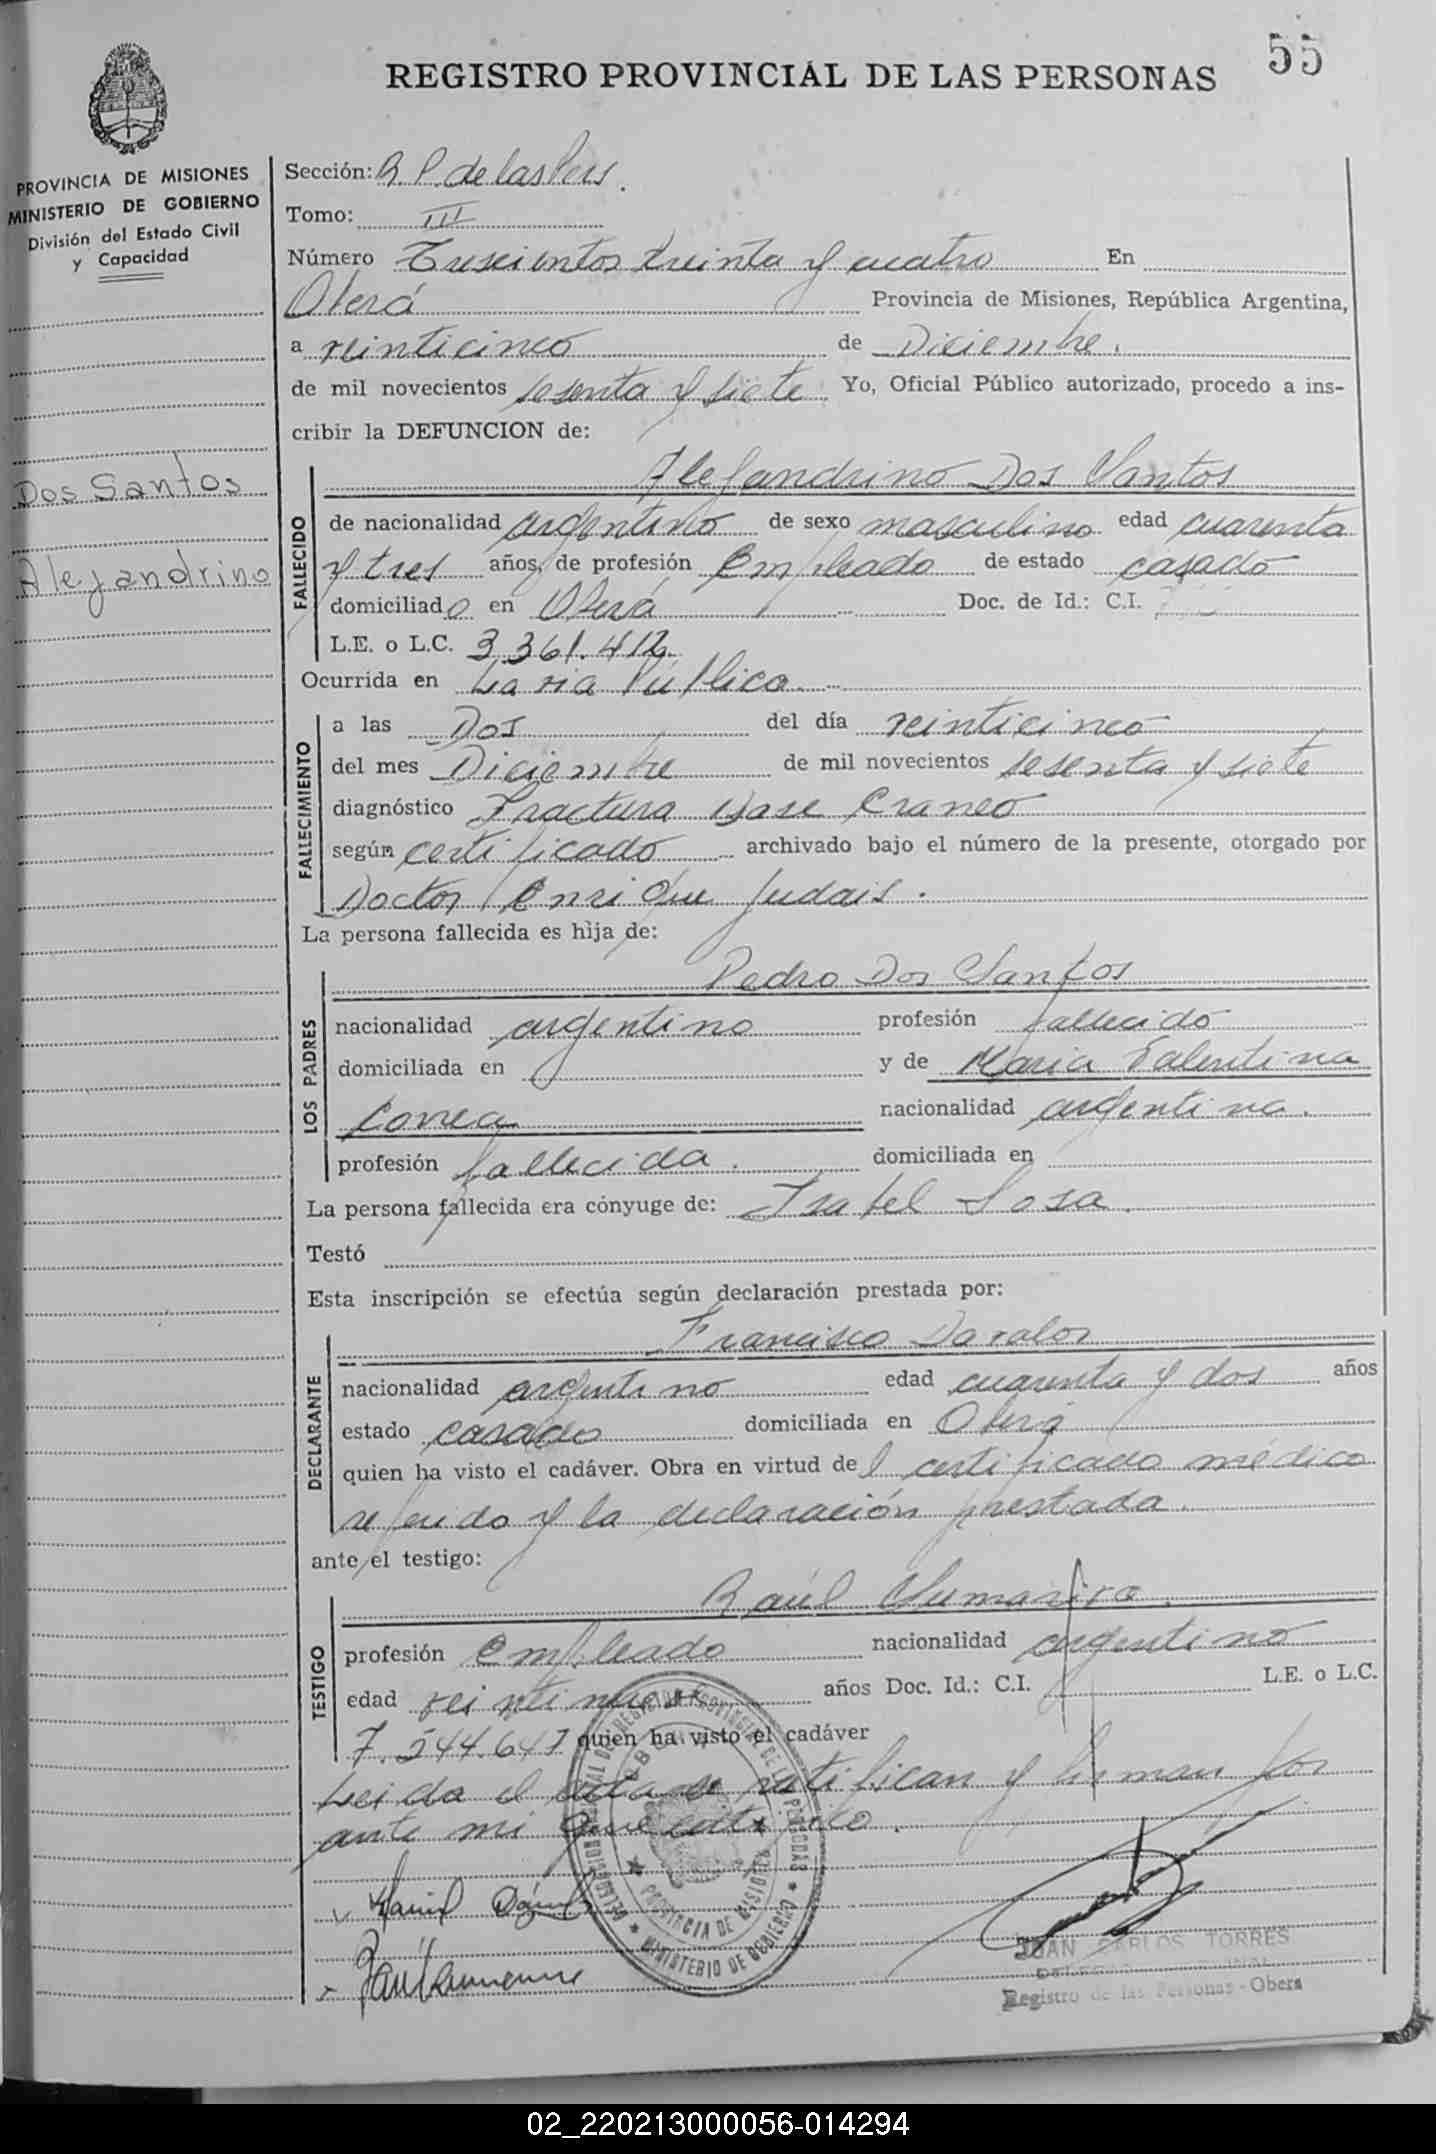 55
REGISTRO PROVINCIAL DE LAS PERSONAS
PROVINCIA DE MISIONES
MINISTERIO DE GOBIERNO
División del Estado Civil
y Capacidad
Dos Santos
Alejandrino
Sección: R. P. de las Pers.
Tomo: III
Número Trescientos treinta y cuatro En
Oberá Provincia de Misiones, República Argentina,
a veinticinco de Diciembre.
de mil novecientos sesenta y siete Yo, Oficial Público autorizado, procedo a ins-
cribir la DEFUNCION de:
FALLECIDO
Alejandrino Dos Santos
de nacionalidad argentino de sexo masculino edad cuarenta
y tres años, de profesión Empleado de estado casado
domiciliado en Oberá Doc. de Id.: C.I.
L.E. o L.C. 3.361.412.
Ocurrida en La via Pública.
FALLECIMIENTO
a las Dos del día veinticinco
del mes Diciembre de mil novecientos sesenta y siete
diagnóstico Fractura base Craneo
según certificado archivado bajo el número de la presente, otorgado por
Doctor Enrique Judais.
La persona fallecida es hija de:
LOS PADRES
Pedro Dos Santos
nacionalidad argentino profesión fallecido
domiciliada en y de Maria Valentina
Correa nacionalidad argentina.
profesión fallecida. domiciliada en
La persona fallecida era cónyuge de: Isabel Sosa.
Testó
Esta inscripción se efectúa según declaración prestada por:
DECLARANTE
Francisco Davalos
nacionalidad argentino edad cuarenta y dos años
estado casado domiciliada en Oberá
quien ha visto el cadáver. Obra en virtud del certificado médico
referido y la declaración prestada.
ante el testigo:
TESTIGO
Raúl
profesión Empleado nacionalidad argentino
edad años Doc. Id.: C.I. L.E. o L.C.
7.544.647 quien ha visto el cadáver
Leida el acta se ratifican y firman por
ante mi que certifico.
DELEGACION REGIONAL DEL REGISTRO PROVINCIAL DE LAS PERSONAS
OBERA
PROVINCIA DE MISIONES
MINISTERIO DE GOBIERNO
JUAN CARLOS TORRES
Registro de las Personas - Obera
02_220213000056-014294